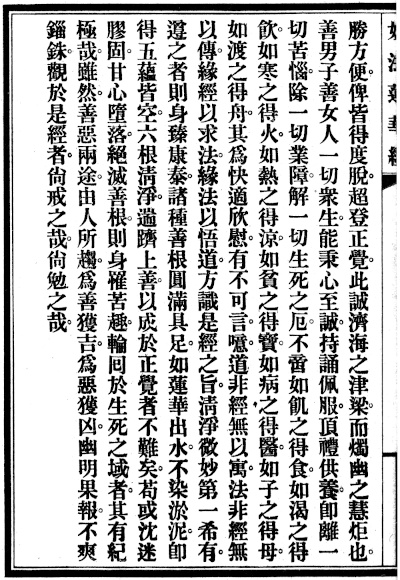 勝方便。俾皆得度脫。超登正覺。此誠濟海之津梁。而燭幽之慧炬也。
善男子善女人。一切衆生。能秉心至誠。持誦佩服。頂禮供養。卽離一
切苦惱。除一切業障。解一切生死之厄。不啻如飢之得食。如渴之得
飲。如寒之得火。如熱之得涼。如貧之得寶。如病之得醫。如子之得母。
如渡之得舟。其爲快適欣慰。有不可言。噫。道非經無以寓。法非經無
以傳。緣經以求法。緣法以悟道。方識是經之旨。清淨微妙。第一希有。
遵之者則身臻康泰。諸種善根。圓滿具足。如蓮華出水。不染淤泥。卽
得五蘊皆空。六根清淨。遄躋上善。以成於正覺者不難矣。苟或沈迷
膠固。甘心墮落。絕滅善根。則身罹苦趣。輪回於生死之域者。其有紀
極哉。雖然善惡兩途。由人所趨。爲善獲吉。爲惡獲凶。幽明果報。不爽
錙銖。觀於是經者。尙戒之哉。尙勉之哉。
妙法蓮華經